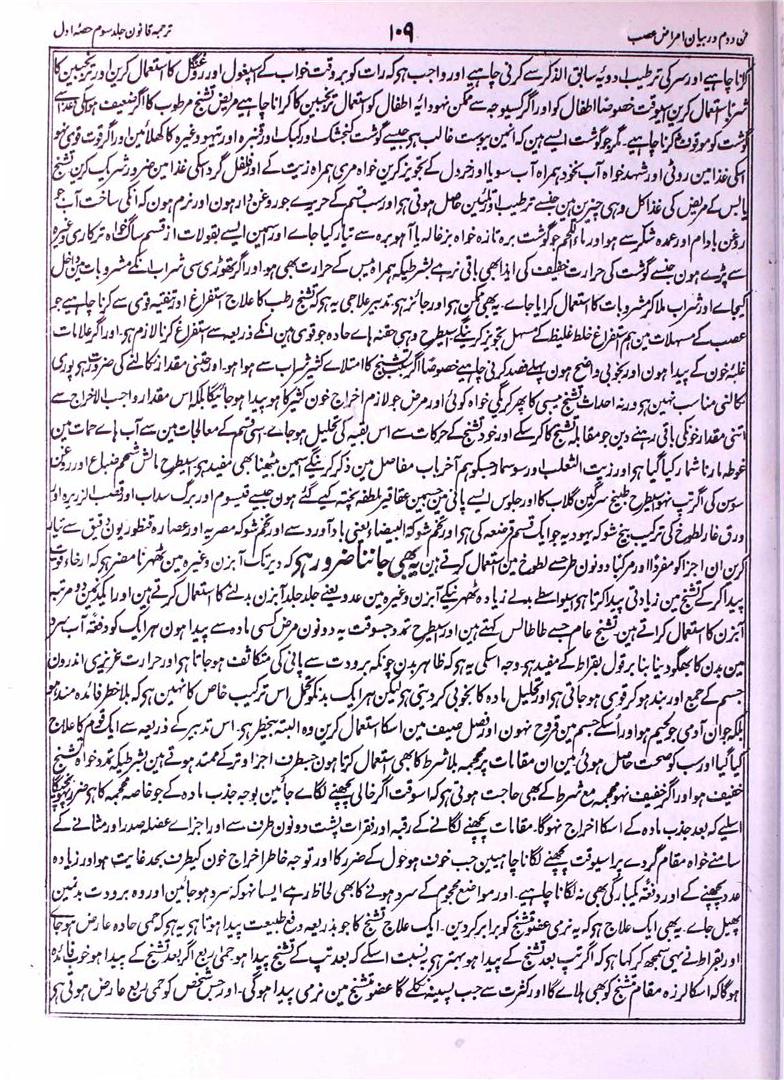 ترجمہ قانون جلد سوم حصہ اول ۱۰۹ فن دوم در بیان امراض عصب
کرنا چاہیے اور سر کی ترطیب ادویہ سابق الذکر سے کرنی چاہیے اور واجب ہو کہ رات کو بروقت خواب کے اسپغول اور روغن گل کا استعمال کرین اور ترنجبین کا
شربت استعمال کرین اسیوقت خصوصاً اطفال کو اور اگر کسیوجہ سے ممکن نہو دایۂ اطفال کو استعمال ترنجبین کا کرانا چاہیے مریض تشنج مرطوب کا اگر ضعیف ہو اسکی غذا سے
گوشت کو موقوف کرنا چاہیے۔ مگر جو گوشت ایسے ہین کہ انمین یبوست غالب ہو جیسے گوشت کنجشک اور کبک اور قنبرہ اور تیہو وغیرہ کا کھلائین اور اگر قوت قوی ہو
اسکی غذا مین روٹی اور شہد خواہ آب نخود ہمراہ آب سویا اور خردل کے تجویز کرین خواہ مری ہمراہ زیت کے اور فلفل گرد اسکی غذا مین ضرور شریک کرین تشنج
یابس کے مریض کی غذا کل وہی چیزین ہین جنسے ترطیب اور تلیین حاصل ہوتی ہو اور سب قسم کے حریرے جو روغن دار ہون اور نرم ہون کہ انکی ساخت آب جو
روغن بادام اور عمدہ شکر سے ہو اور ماء اللحم جو گوشت برہ تازہ خواہ بزغالہ یا آہو برہ سے تیار کیا جاے اور اسمین ایسے بقولات از قسم ساگ خواہ ترکاری وغیرہ
سے پڑے ہون جنسے گوشت کی حرارت خفیف کی ایذا بھی باقی نرہے بشرطیکہ ہمراہ یبس کے حرارت بھی ہو اور اگر تھوڑی سی شراب انکے مشروبات مین داخل
کیجاے اور شراب ملا کر مشروبات کا استعمال کرایا جاے۔ یہ بھی ممکن ہو اور جائز ہو، تدبیر علاجی یہ ہو کہ تشنج رطب کا علاج استفراغ اور تنقیہ قوی سے کرنا چاہیے جو
عصب کے مسہلات مین ہم استفراغ خلط غلیظ کے مسہل تجویز کرینگے اسیطرح وہی حقنہ ہاے حادہ جو قوی ہین انکے ذریعہ سے استفراغ کرنا لازم ہو۔ اور اگر علامات
غلبۂ خون کے پیدا ہون اور بخوبی واضح ہون پہلے فصد کرنی چاہیے خصوصاً اگر تشنج کا امتلا سے کثیر شراب سے ہوا ہو۔ اور جتنی مقدار نکالنے کی ضرورت ہو پوری
نکالنی مناسب نہین ہو ورنہ احداث تشنج یبسی کا پھر کریگی خواہ کوئی اور مرض جو لازم اخراج خون کثیر کا ہو پیدا ہو جائیگا بلکہ اس مقدار واجب الاخراج سے
اتنی مقدار خونکی باقی رہنے دین جو مقابلہ تشنج کا کر سکے اور خود تشنج کے حرکات سے اس بقیہ کی تحلیل ہو جاے۔ اسی قسم کے معالجات مین سے آب ہاے حمات مین
غوطہ مارنا شمار کیا گیا ہو اور زیت الثعلب اور سوسمار جسکو ہم آخر باب مفاصل مین ذکر کرینگے اسمین بیٹھنا بھی مفید ہو اسیطرح مالش شحم ضباع اور روغن
سوسن کی اگر تپ نہو اسیطرح طبیخ سرگین گلاب کا اور جلوس ایسے پانی مین جسمین عقاقیر ملطفہ پختہ کیے گئے ہون جیسے قیسوم اور برگ سداب اور قصب الذریرہ اور
ورق غار لطوخ کی ترکیب بیخ شوکہ یہودیہ جو ایک قسم قرصعنہ کی ہو اور تخم شوکۃ البیضاء یعنی باد آورد سے اور تخم شوکہ مصریہ اور عصارہ قنطوریون دقیق سے تیار
کرین ان اجزا کو مفرداً اور مرکباً دونون طرح سے لطوخ مین استعمال کرتے ہین یہ بھی جاننا ضرور رہی کہ دیر تک آبزن وغیرہ مین ٹھہرنا مضر ہو کہ ارخاء قوت
پیدا کرکے تشنج مین زیادتی پیدا کرتا ہو اسواسطے بدلے زیادہ ٹھہرنیکے آبزن وغیرہ مین عدد یعنے جلد جلد آبزن بدلنے کا استعمال کرتے ہین اور ایکدن مین دو مرتبہ
آبزن کا استعمال کراتے ہین۔ تشنج عام جسے طاطالس کہتے ہین اور اسیطرح تمدد جسوقت یہ دونون مرض کسی مادہ سے پیدا ہون ہر ایک کو دفعۃً آب سرد
مین بدن کا بھگو دینا بنا بر قول بقراط کے مفید ہو۔ وجہ اسکی یہ ہو کہ ظاہر بدن چونکہ برودت سے پانی کی متکاثف ہو جاتا ہو اور حرارت غریزی اندرون
جسم کے جمع اور بند ہو کر قوی ہو جاتی ہو اور تحلیل مادہ کا بخوبی کر دیتی ہو لیکن ہر ایک بدنکو تحمل اس ترکیب خاص کا نہین ہو کہ بلا خطر فائدہ مند ہو
بلکہ جوان آدمی جو لحیم ہو اور اسکے جسم مین قروح نہون اور فصل صیف مین اسکا استعمال کرین وہ البتہ بیخطر ہو۔ اس تدبیر کے ذریعہ سے ایک قوم کا علاج
کیا گیا اور سب کو صحت حاصل ہوئی ہین ان مقامات پر محجمہ بلا شرط کا بھی استعمال کرتا ہون جسطرف اجزا وتر کے ممتد ہوتے ہین بشرطیکہ تمدد خواہ تشنج
خفیف ہو اور اگر خفیف نہو محجمہ مع شرط کے بھی حاجت ہوتی ہو کہ اسوقت اگر خالی پچھنے لگاے جائین بوجہ جذب مادہ کے جو خاصہ محجمہ کا ہو ضرر پہونچیگا
اسلیے کہ بعد جذب مادہ کے اسکا اخراج نہوگا۔ مقامات پچھنے لگانے کے رقبہ اور فقرات پشت دونون طرف سے اور اجزاے عضلہ صدر اور مثانے کے
سامنے خواہ مقام گردے پر اسیوقت پچھنے لگانا چاہیین جب خوف ہو حول کے ضرر کا اور توجہ خاطر اخراج خون کیطرف بحد غایت ہو اور زیادہ
عدد پچھنے کے اور دفعۃً یکبارگی بھی نہ لگانا چاہیے۔ اور مواضع محجوم کے سرد ہونے کا بھی لحاظ رہے ایسا نہو کہ سرد ہو جائین اور وہ برودت بدنمین
پھیل جاے۔ یہ بھی ایک علاج ہو کہ بہ نرمی عضو متشنج کو برابر کر دین۔ ایک علاج تشنج کا جو بذریعہ دفع طبیعت پیدا ہوتا ہو یہ ہو کہ حمی حادہ عارض ہو جاے
اور بقراط نے یہی سمجھ کر کہا ہو کہ اگر تپ بعد تشنج کے پیدا ہو بہتر ہو بہ نسبت اسکے کہ بعد تپ کے تشنج پیدا ہو حمی ربع اگر بعد تشنج کے پیدا ہو خوب فائدہ
ہوگا کہ اسکا لرزہ مقام تشنج کو بھی ہلاے گا اور کثرت سے جب پسینہ نکلے گا عضو متشنج مین نرمی پیدا ہوگی۔ اور جس شخص کو حمی ربع عارض ہوتی ہو